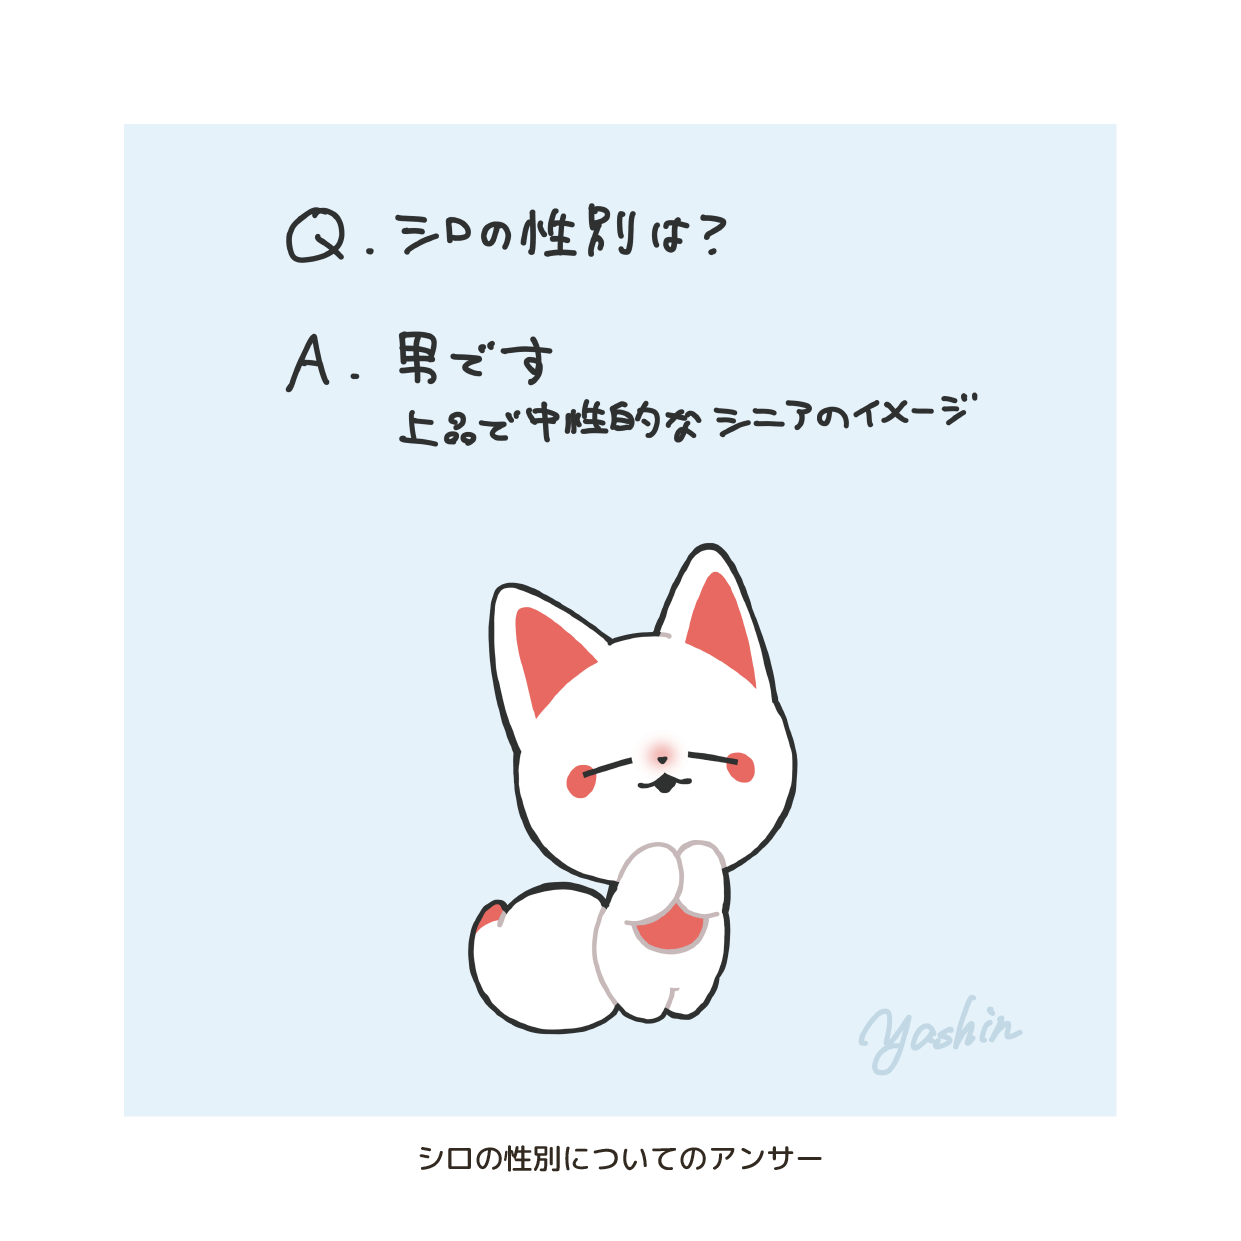 Q.シロの性別は?
A.男です
上品で中性的なシニアのイメージ
yashin
シロの性別についてのアンサー